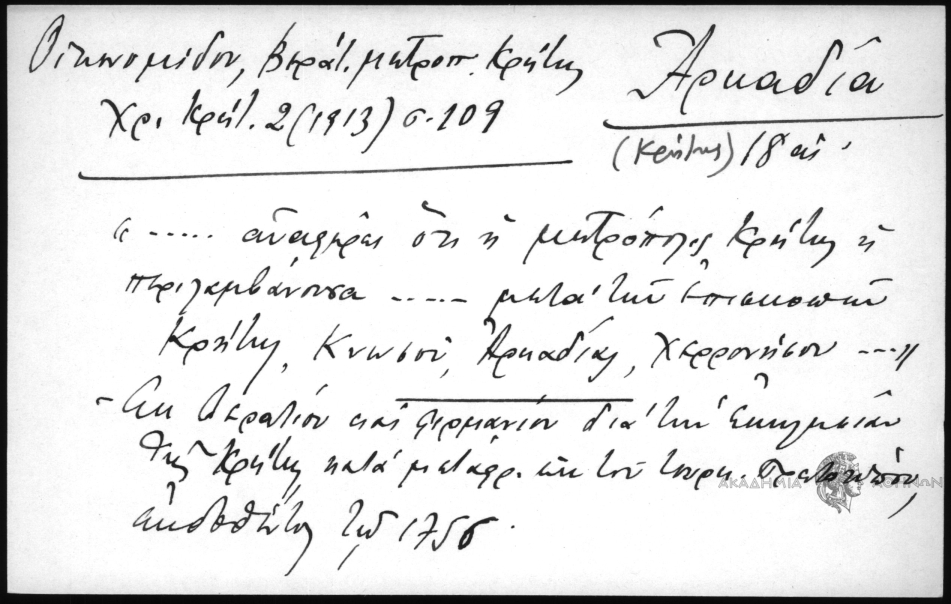 Οἰκονομίδου, Βεράτ. μητροπ. Κρήτης
Χρ. Κρήτ. 2 (1913) σ. 109
Ἀρκαδία
(Κρήτης) 18 αἰ.
« ..... ἀναφέρας ὅτι ἡ μητρόπολις Κρήτης ἡ
περιλαμβάνουσα ...... μετὰ τῶν ἐπισκοπῶν
Κρήτης, Κνωσοῦ, Ἀρκαδίας, Χερρονήσου ....»
- Ἐκ βερατίου καὶ φιρμανίου διὰ τὴν Ἐκκλησίαν
τῆς Κρήτης κατὰ μετάφρ. ἐκ τοῦ τουρκ.
ἐκδοθέντος τῷ 1756.
ΑΚΑΔΗΜΙΑ ΑΘΗΝΩΝ